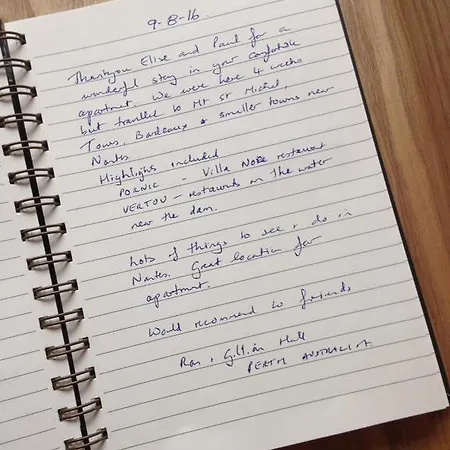 9-8-16
Thankyou Elise and Paul for a
wonderful stay in your comfortable
apartment. We were here 4 weeks
but travelled to Mt St Michel,
Tours, Bordeaux + smaller towns near
Nantes.
Highlights included
PORNIC - Villa Noë restaurant
VERTOU - restaurants on the water
near the dam.
Lots of things to see + do in
Nantes. Great location for
apartment.
Would recommend to friends
Ron + Gillian Hull
PERTH AUSTRALIA